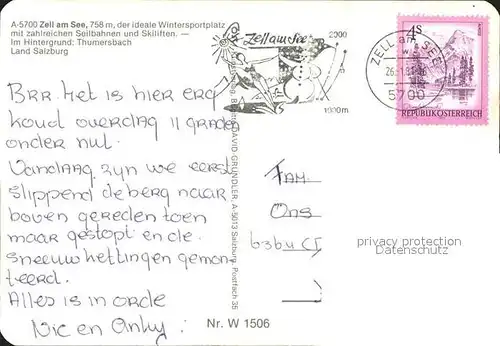 A-5700 Zell am See, 758 m, der ideale Wintersportplatz
mit zahlreichen Seilbahnen und Skiliften. —
Im Hintergrund: Thumersbach
Land Salzburg
BRR. Het is hier erg
koud overdag 11 graden
onder nul.
Vandaag zyn we eerst
slippend de berg naar
boven gereden toen
maar gestopt en de
sneeuwkettingen gemon-
teerd.
Alles is in orde
Nic en Anky.
Nr. W 1506
DAVID GRUNDLER, A-5013 Salzburg, Postfach 35
Zell am See
2000
1000m
ZELL am SEE
5700
4s
REPUBLIK ÖSTERREICH
FAM.
Ons
privacy protection
Datenschutz